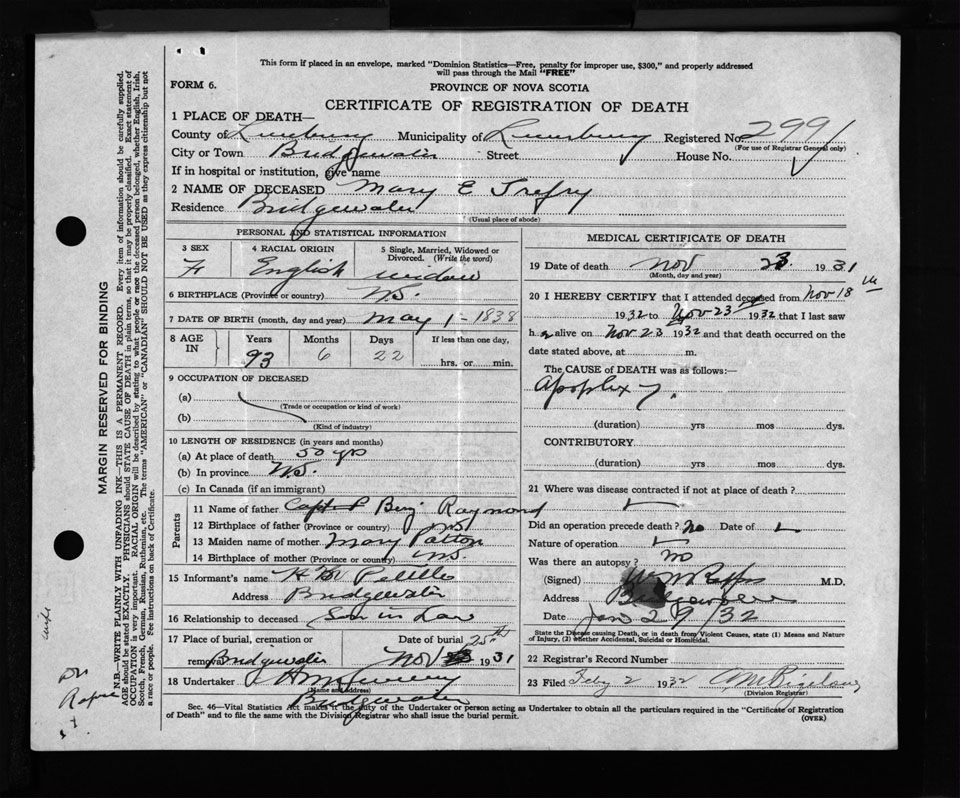 This form if placed in an envelope, marked "Dominion Statistics—Free, penalty for improper use, $300," and properly addressed
will pass through the Mail "FREE"
FORM 6.
PROVINCE OF NOVA SCOTIA
CERTIFICATE OF REGISTRATION OF DEATH
1 PLACE OF DEATH—
County of Lunenburg Municipality of Lunenburg Registered No. 2991
(For use of Registrar General only)
City or Town Bridgewater Street House No.
If in hospital or institution, give name
2 NAME OF DECEASED Mary E Trefry
Residence Bridgewater
(Usual place of abode)
PERSONAL AND STATISTICAL INFORMATION
3 SEX 4 RACIAL ORIGIN 5 Single, Married, Widowed or
Divorced. (Write the word)
F English widow
6 BIRTHPLACE (Province or country) N.S.
7 DATE OF BIRTH (month, day and year) May 1 - 1838
8 AGE IN Years Months Days If less than one day,
93 6 22 hrs. or min.
9 OCCUPATION OF DECEASED
(a)
(Trade or occupation or kind of work)
(b)
(Kind of industry)
10 LENGTH OF RESIDENCE (in years and months)
(a) At place of death 50 yrs
(b) In province N.S.
(c) In Canada (if an immigrant)
Parents
11 Name of father Capt Benj Raymond
12 Birthplace of father (Province or country) NS
13 Maiden name of mother Mary Patton
14 Birthplace of mother (Province or country) NS
15 Informant's name
Address Bridgewater
16 Relationship to deceased Son in Law
17 Place of burial, cremation or Date of burial 25th
removal Bridgewater Nov 1931
18 Undertaker
(Name and address)
Bridgewater
MEDICAL CERTIFICATE OF DEATH
19 Date of death Nov 23 1931
(Month, day and year)
20 I HEREBY CERTIFY that I attended deceased from Nov 18th
1932 to Nov 23 1932 that I last saw
h alive on Nov 23 1932 and that death occurred on the
date stated above, at m.
The CAUSE OF DEATH was as follows:—
Apoplexy.
(duration) yrs mos dys.
CONTRIBUTORY
(duration) yrs mos dys.
21 Where was disease contracted if not at place of death?
Did an operation precede death? No Date of
Nature of operation
Was there an autopsy? No
(Signed) M.D.
Address Bridgewater
Date Jan 29/32
State the Disease causing Death, or in death from Violent Causes, state (1) Means and Nature
of Injury, (2) whether Accidental, Suicidal or Homicidal.
22 Registrar's Record Number
23 Filed Feby 2 1932
(Division Registrar)
Sec. 46—Vital Statistics Act makes it the duty of the Undertaker or person acting as Undertaker to obtain all the particulars required in the "Certificate of Registration
of Death" and to file the same with the Division Registrar who shall issue the burial permit.
(OVER)
MARGIN RESERVED FOR BINDING
N.B.—WRITE PLAINLY WITH UNFADING INK—THIS IS A PERMANENT RECORD. Every item of information should be carefully supplied.
AGE should be stated EXACTLY. PHYSICIANS should STATE CAUSE OF DEATH in plain terms, so that it may be properly classified. Exact statement of
OCCUPATION is very important. RACIAL ORIGIN will be described by stating to what people or race the deceased person belonged, whether English, Irish,
Scotch, French, German, Russian, Ruthenian, etc. The terms "AMERICAN" or "CANADIAN" SHOULD NOT BE USED as they express citizenship but not
a race or people. Fee instructions on back of Certificate.
Dr